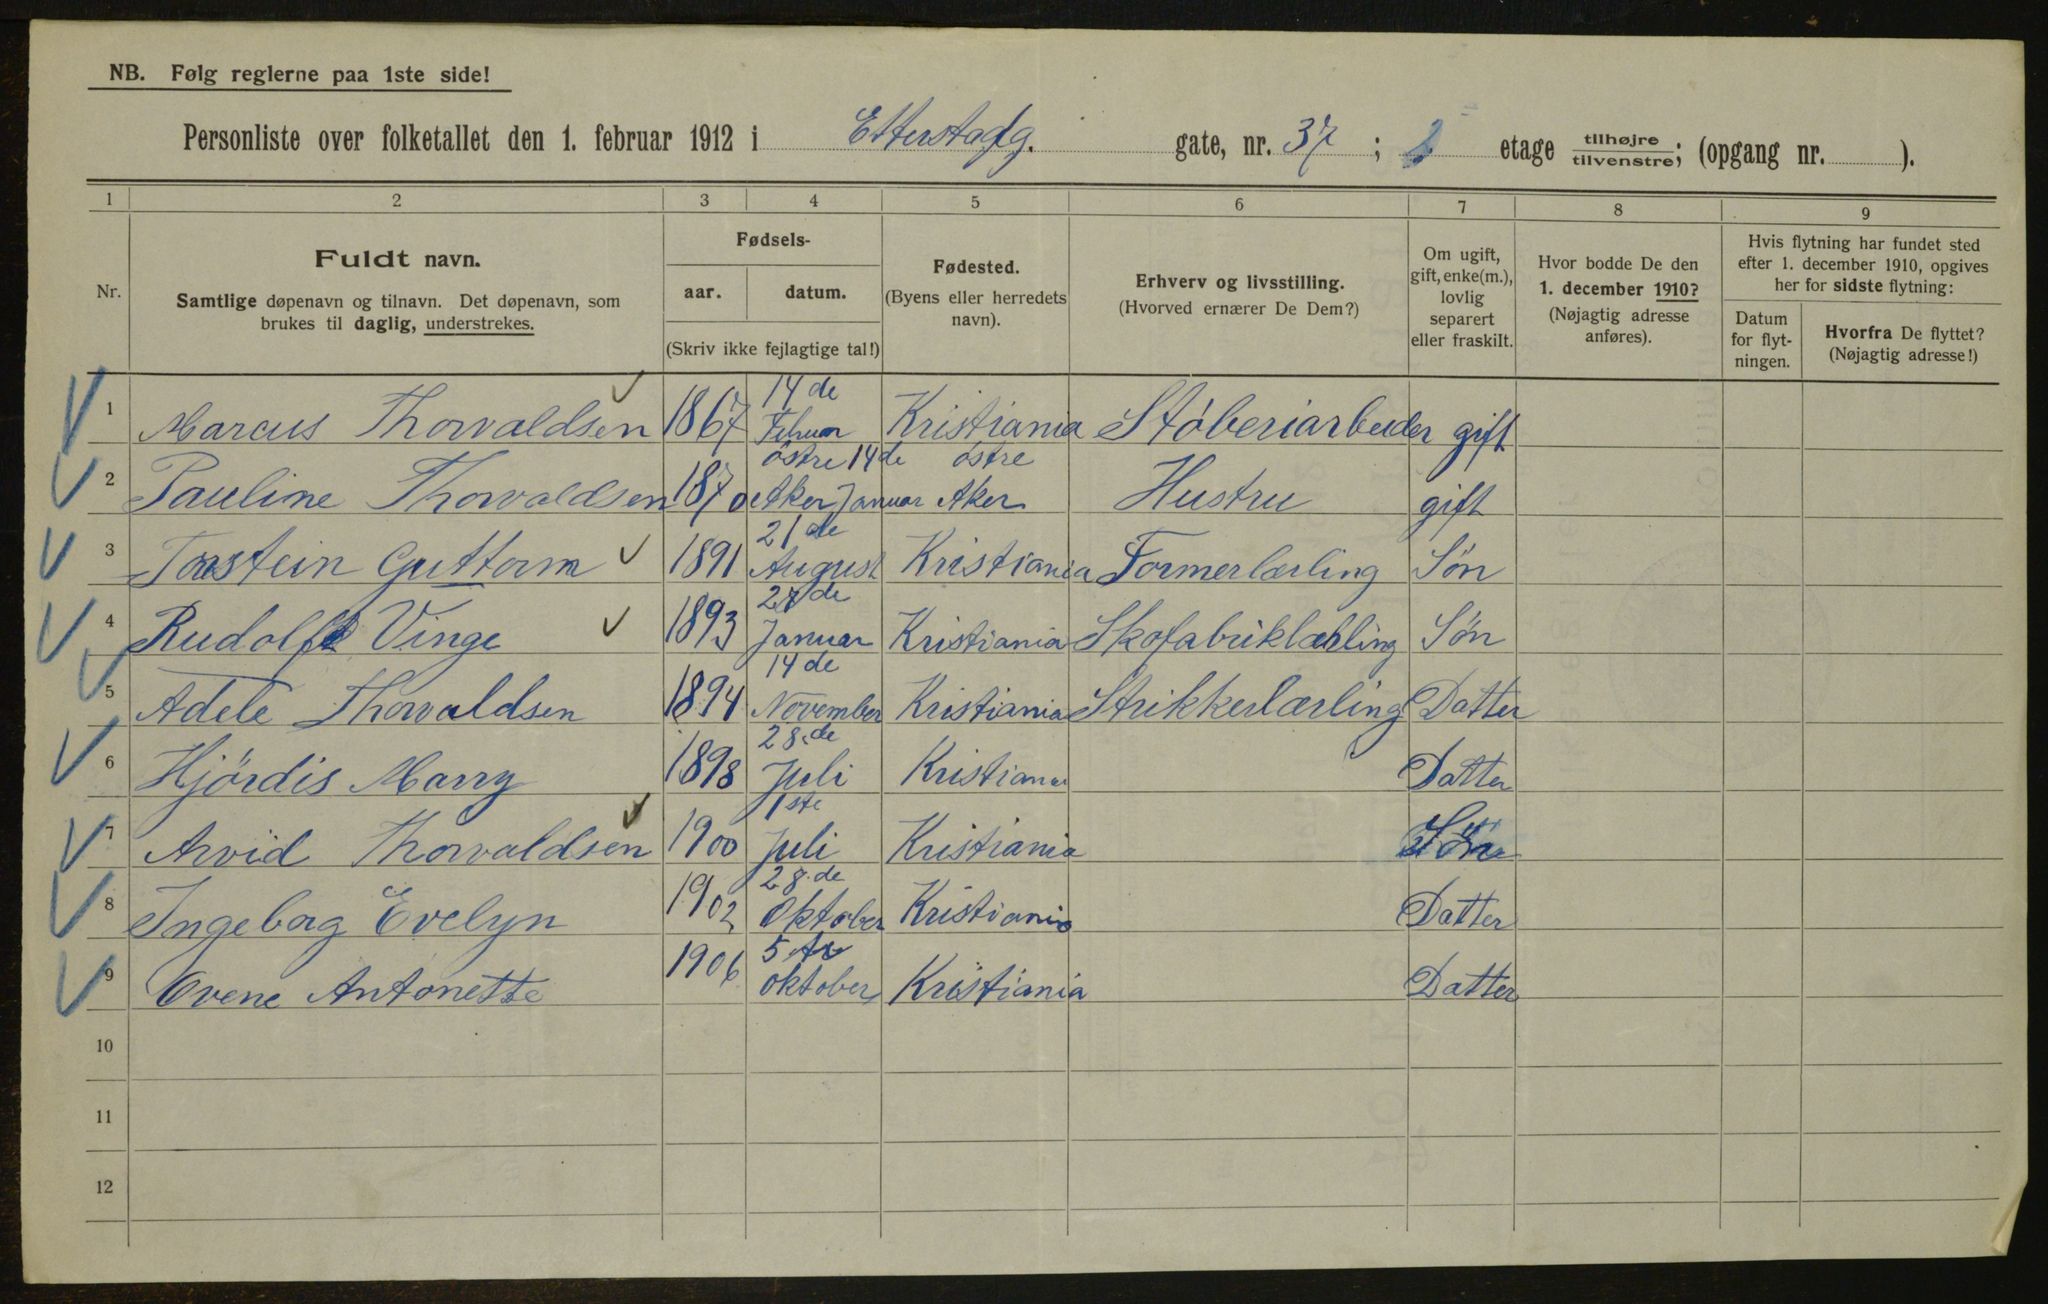 NB. Følg reglerne paa 1ste side!
Personliste over folketallet den 1. februar 1912 i Etterstadg. gate, nr. 37; 2 etage tilhøjre/tilvenstre; (opgang nr. ).
1 2 3 4 5 6 7 8 9
Nr.
Fuldt navn.
Samtlige døpenavn og tilnavn. Det døpenavn, som
brukes til daglig, understrekes.
Fødsels-
aar. datum.
(Skriv ikke fejlagtige tal!)
Fødested.
(Byens eller herredets
navn).
Erhverv og livsstilling.
(Hvorved ernærer De Dem?)
Om ugift,
gift, enke(m.),
lovlig
separert
eller fraskilt.
Hvor bodde De den
1. december 1910?
(Nøjagtig adresse
anføres).
Hvis flytning har fundet sted
efter 1. december 1910, opgives
her for sidste flytning:
Datum
for flyt-
ningen.
Hvorfra De flyttet?
(Nøjagtig adresse!)
1 Marcus Thorvaldsen 1867 14de Februar Kristiania Støberiarbeider gift
2 Pauline Thorvaldsen 1870 østre Aker 14de Januar østre Aker Hustru gift
3 Torstein Guttorm 1891 21de August Kristiania Formerlærling Søn
4 Rudolf Vinge 1893 27de Januar Kristiania Skofabriklærling Søn
5 Adele Thorvaldsen 1894 14de November Kristiania Strikkerlærling Datter
6 Hjördis Marry 1898 28.de Juli Kristiania Datter
7 Arvid Thorvaldsen 1900 1ste Juli Kristiania Søn
8 Ingeborg Evelyn 1902 28.de Oktober Kristiania Datter
9 Evene Antonette 1906 5te oktober Kristiania Datter
10
11
12